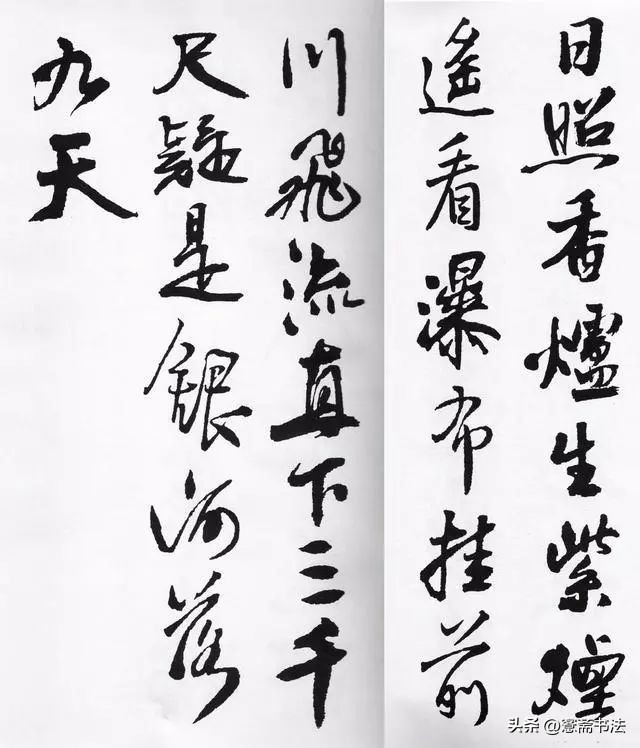 日照香爐生紫煙
遙看瀑布挂前
川飛流直下三千
尺疑是銀河落
九天
头条@寭斋书法